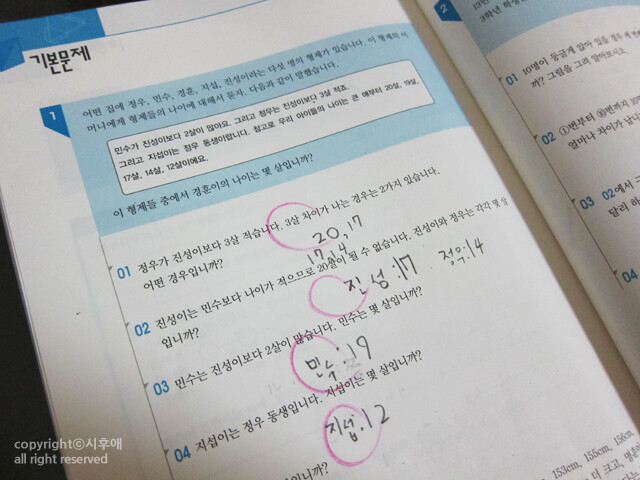 기본문제
1
어떤 집에 정우, 민수, 경훈, 지섭, 진성이라는 다섯 명의 형제가 있습니다. 이 형제의 어
머니에게 형제들의 나이에 대해서 묻자, 다음과 같이 말했습니다.
민수가 진성이보다 2살이 많아요. 그리고 정우는 진성이보다 3살 적죠.
그리고 지섭이는 정우 동생이랍니다. 참고로 우리 아이들의 나이는 큰 애부터 20살, 19살,
17살, 14살, 12살이에요.
이 형제들 중에서 경훈이의 나이는 몇 살입니까?
01 정우가 진성이보다 3살 적습니다. 3살 차이가 나는 경우는 2가지 있습니다.
어떤 경우입니까?
20, 17
17, 14
02 진성이는 민수보다 나이가 적으므로 20살이 될 수 없습니다. 진성이와 정우는 각각 몇 살
입니까?
진성:17 정우:14
03 민수는 진성이보다 2살이 많습니다. 민수는 몇 살입니까?
민수:19
04 지섭이는 정우 동생입니다. 지섭이는 몇 살입니까?
지섭:12
입니까?
2
3학년 학생
01 10명이 둥글게 앉아 있을 경우
까? 그림을 그려 알아보시오.
02 ①번부터 ⑥번까지 10
얼마나 차이가 납니
03 02에서 구
달리 하
153cm, 155cm, 156cm
더 크고, 영훈
copyrightⓒ시후애
all right reserved